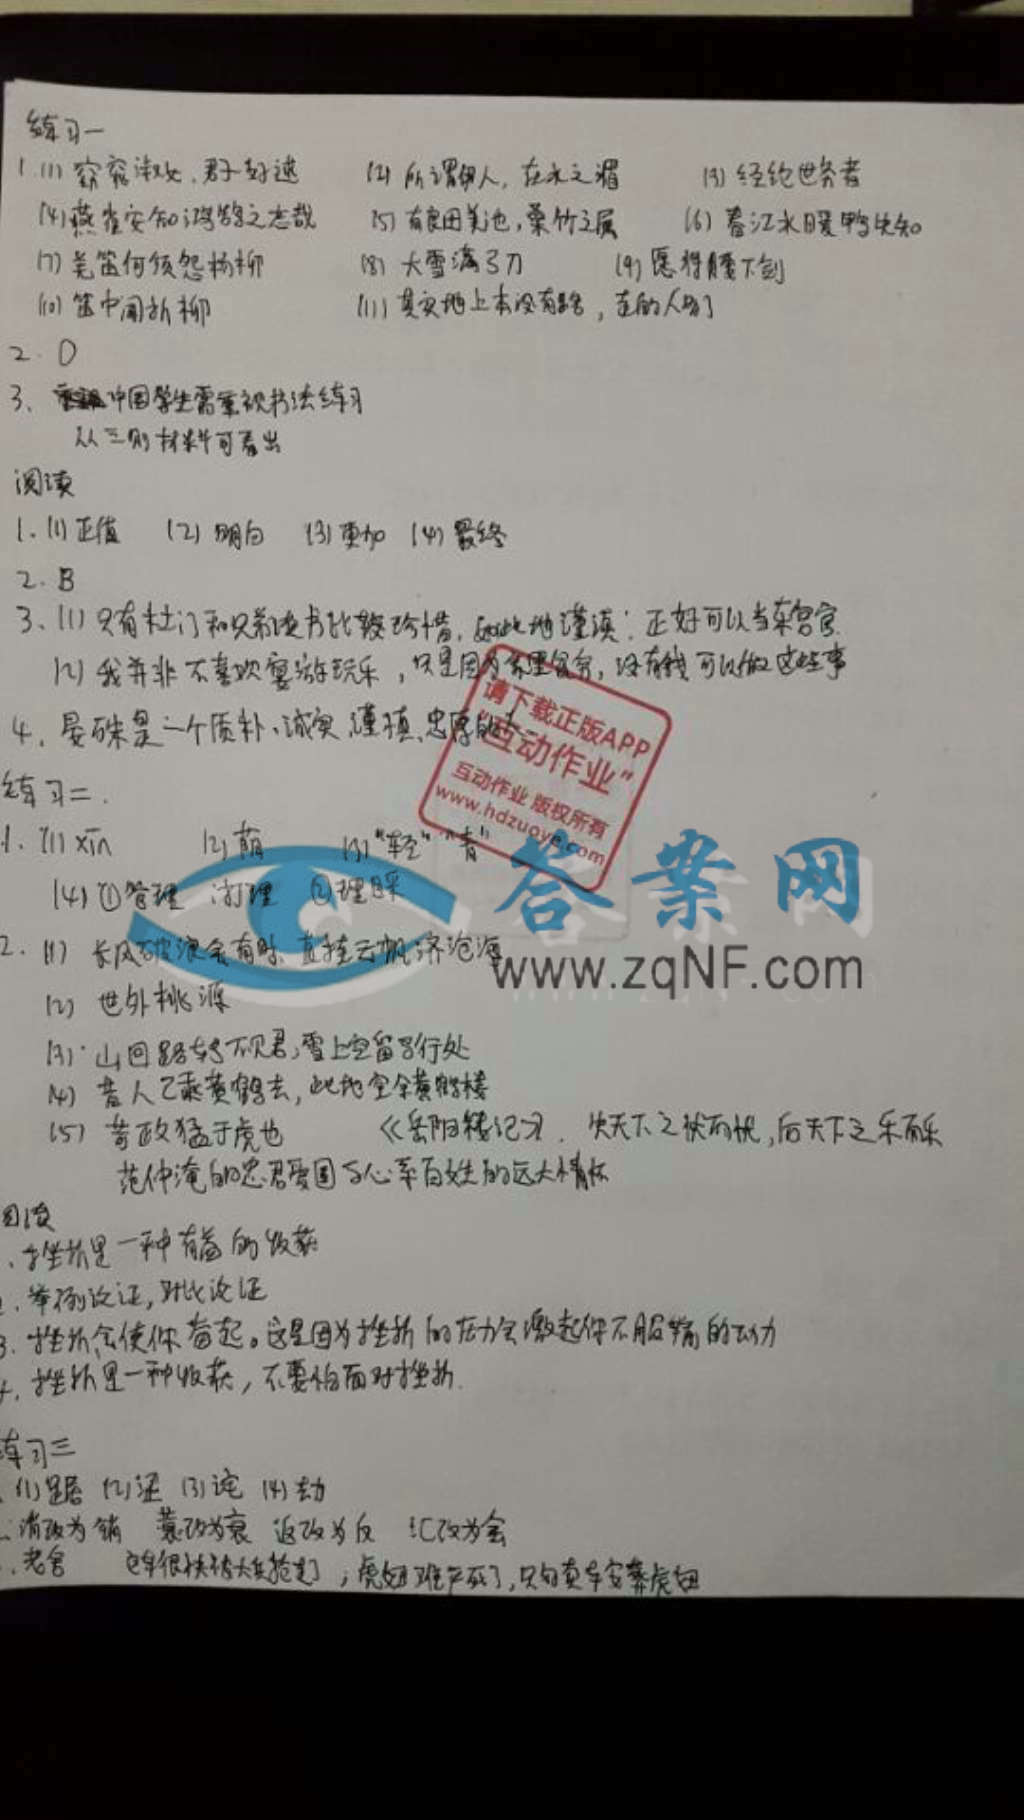 练习一
1.(1) 窈窕淑女,君子好逑 (2) 所谓伊人,在水之湄 (3) 经纶世务者
(4) 燕雀安知鸿鹄之志哉 (5) 有良田美池,桑竹之属 (6) 春江水暖鸭先知
(7) 羌笛何须怨杨柳 (8) 大雪满弓刀 (9) 愿得腰下剑
(10) 笛中闻折柳 (11) 其实地上本没有路,走的人多了
2. D
3. 中国学生需重视书法练习
从三则材料可看出
阅读
1.(1) 正值 (2) 明白 (3) 更加 (4) 最终
2. B
3.(1) 只有杜门和兄弟读书比较珍惜,如此地谨慎;正好可以当东宫官
(2) 我并非不喜欢宴游玩乐,只是因为家里贫穷,没有钱可以做这些事
4. 晏殊是一个质朴、诚实、谨慎、忠厚的人
请下载正版APP
“互动作业”
互动作业 版权所有
www.hdzuoye.com
练习二.
1.(1) xīn (2) 萌 (3) “轻”“青”
(4) ①管理 清理 ②理睬
答案网
www.zqNF.com
2.(1) 长风破浪会有时,直挂云帆济沧海
(2) 世外桃源
(3) 山回路转不见君,雪上空留马行处
(4) 昔人已乘黄鹤去,此地空余黄鹤楼
(5) 苛政猛于虎也 《岳阳楼记》. 先天下之忧而忧,后天下之乐而乐
范仲淹的忠君爱国与心系百姓的远大情怀
阅读
1. 挫折是一种有益的收获
2. 举例论证,对比论证
3. 挫折会使你奋起。这是因为挫折的压力会激起你不服输的动力
4. 挫折是一种收获,不要怕面对挫折.
练习三
(1) 踞 (2) 泟 (3) 诧 (4) 劫
消改为销 蓑改为衰 返改为反 汇改为会
老舍 这车很快被大兵抢走了;虎妞难产死了,只勾卖车安葬虎妞